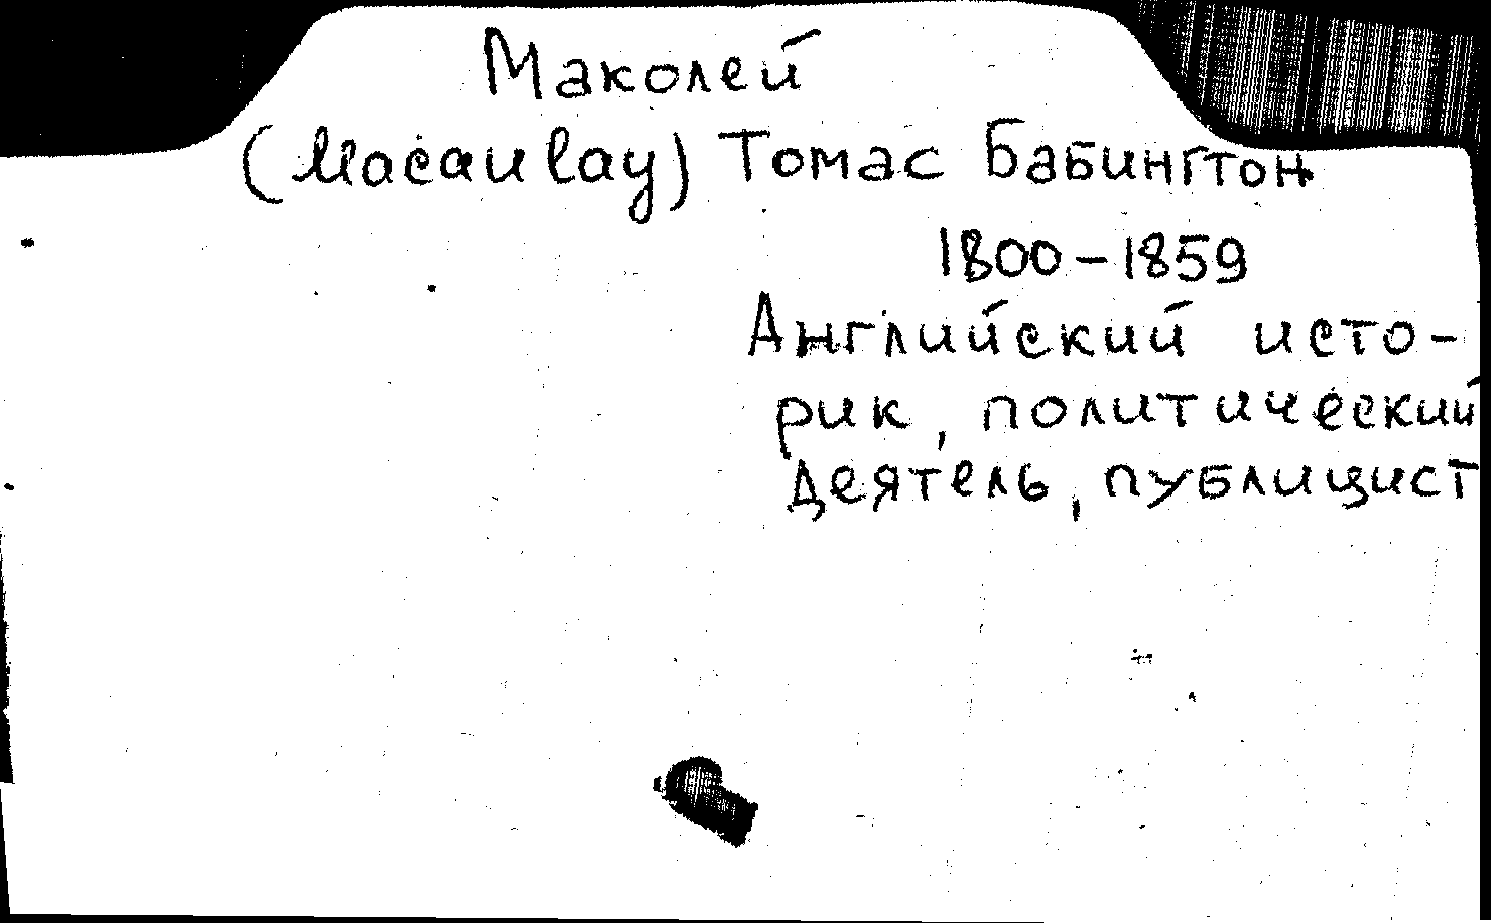 Маколей
(Macaulay) Томас Бабингтон
1800-1859
Английский исто-
рик, политический
деятель, публицист